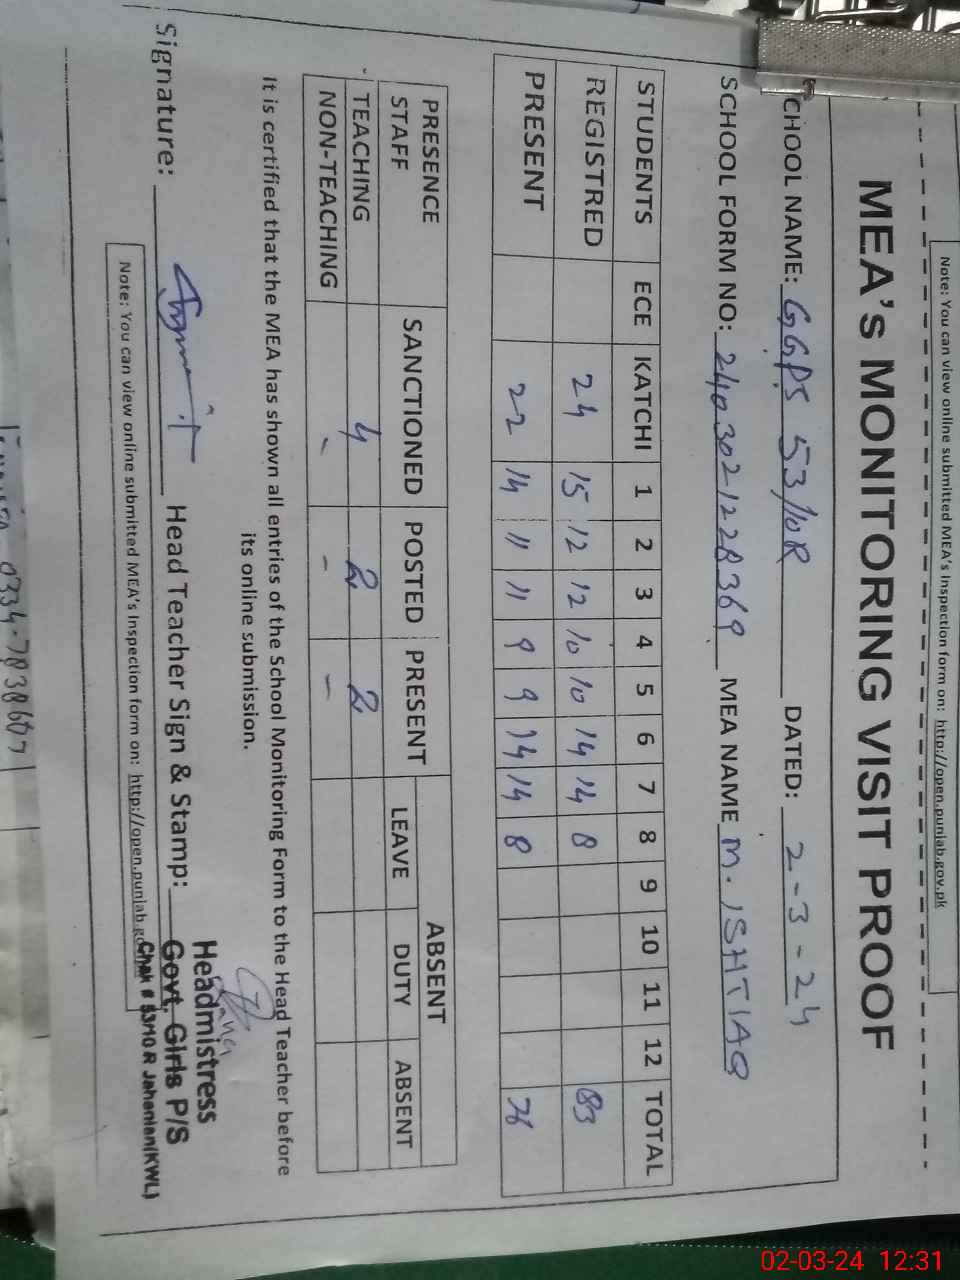 Note: You can view online submitted MEA's Inspection form on: http://open.punjab.gov.pk
MEA's MONITORING VISIT PROOF
CHOOL NAME: GGPS 53/10R DATED: 2-3-24
SCHOOL FORM NO: 2403021228369 MEA NAME M. ISHTIAQ
STUDENTS ECE KATCHI 1 2 3 4 5 6 7 8 9 10 11 12 TOTAL
REGISTRED 24 15 12 12 10 10 14 14 8 83
PRESENT 22 14 11 11 9 9 14 14 8 76
PRESENCE STAFF SANCTIONED POSTED PRESENT ABSENT
LEAVE DUTY ABSENT
TEACHING 4 2 2
NON-TEACHING - - -
It is certified that the MEA has shown all entries of the School Monitoring Form to the Head Teacher before
its online submission.
Signature: Head Teacher Sign & Stamp:
Headmistress
Govt. Girls P/S
Chak # 53/10 R Jahanian(KWL)
Note: You can view online submitted MEA's Inspection form on: http://open.punjab.go
0334-7838607
02-03-24 12:31